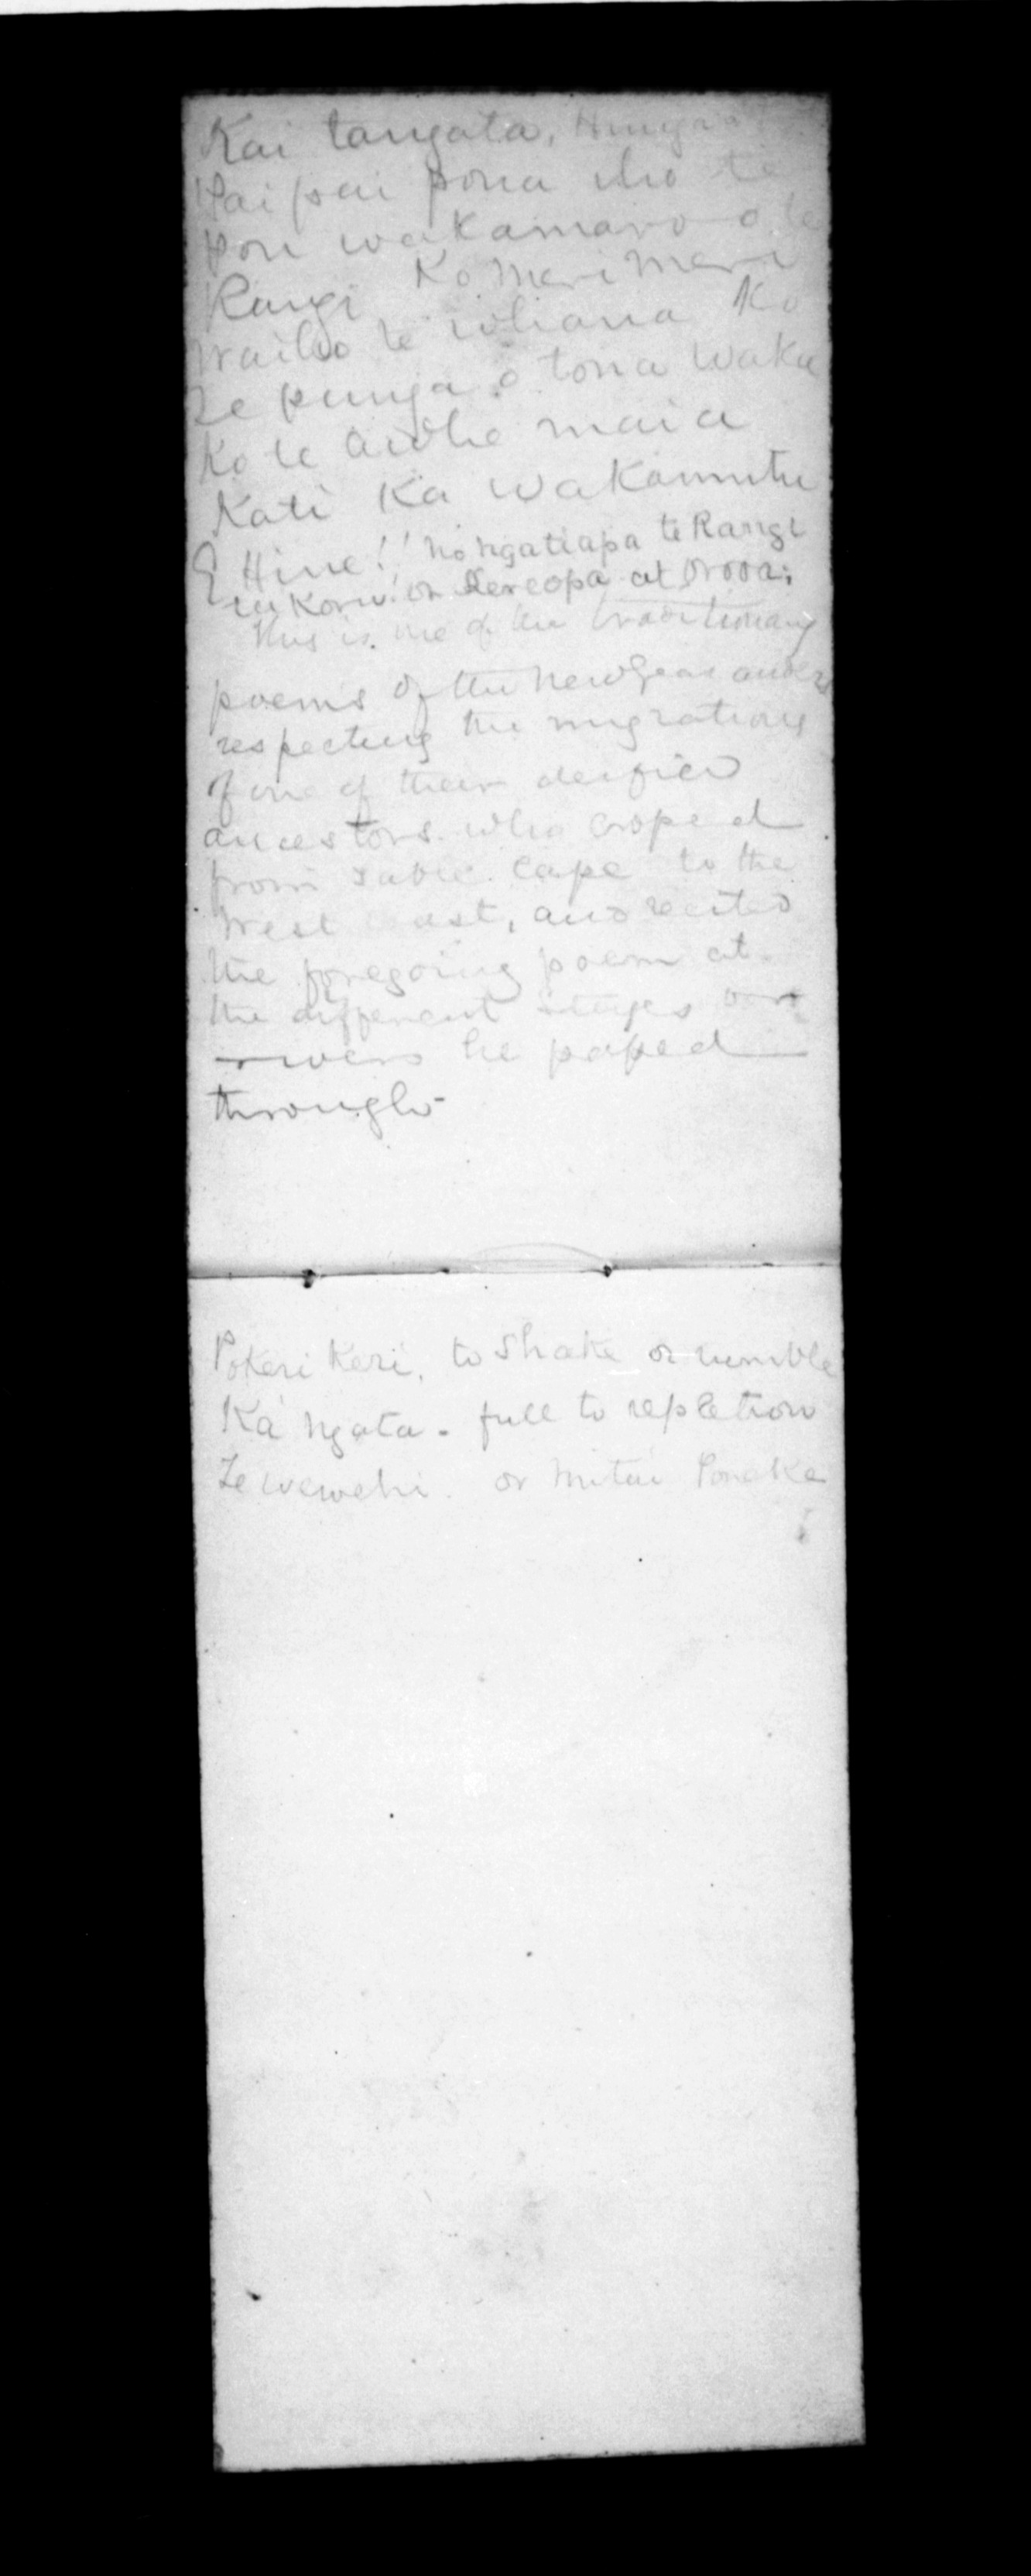 Kai tangata,
Kai pai pona iho te
pou wakamaro o te
Rangi Ko meri meri
Waiho te whana Ko
te punga o tona waka
Ko te awhe maia
Kati Ka wakamutu
E Hine!! no ngatiapa te Rangi
or Kereopa at Oroa:
This is one of the traditionary
poems of the New Zealanders
respecting the migrations
of one of their deified
ancestors who crossed
from Table Cape to the
West Coast, and recited
the foregoing poem at
the different stages
rivers he passed
through
Pokeri Keri, to shake or rumble
Ka ngata - full to repletion
Te wewehi. or mitai Poneke